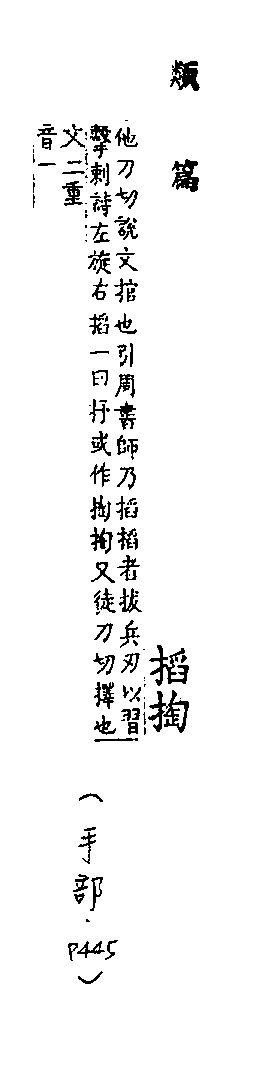 類篇
搯掏
他刀切說文捾也引周書師乃搯搯者拔兵刃以習
擊刺詩左旋右搯一曰抒或作掏掏又徒刀切擇也
文二重
音一
（手部．P445）